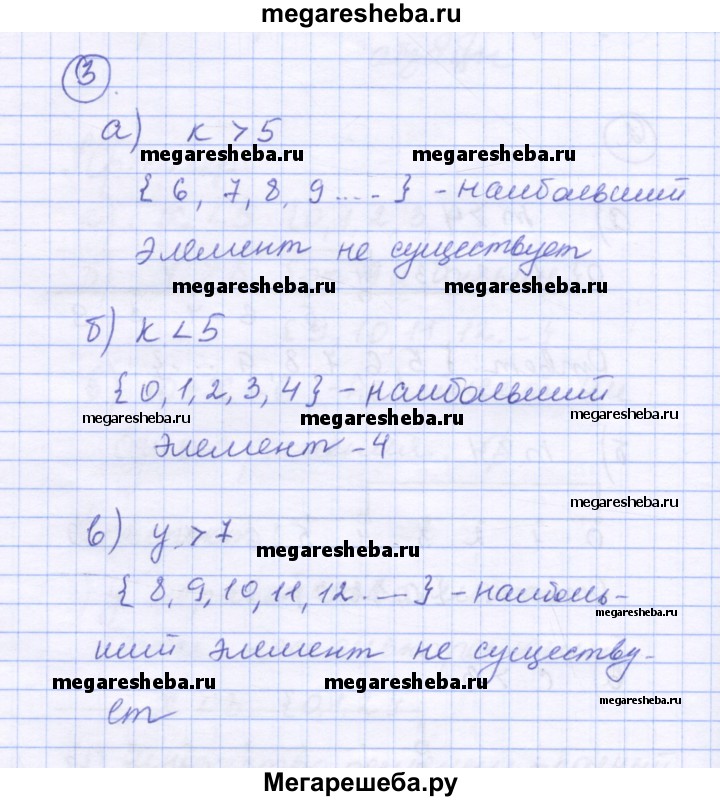 megaresheba.ru
3.
а) к > 5
megaresheba.ru megaresheba.ru
{ 6, 7, 8, 9 .... } - наибольший
элемент не существует
megaresheba.ru megaresheba.ru
б) к < 5
{ 0, 1, 2, 3, 4 } - наибольший
megaresheba.ru megaresheba.ru megaresheba.ru
элемент - 4
megaresheba.ru
в) у > 7
megaresheba.ru
{ 8, 9, 10, 11, 12 .... } - наиболь-
megaresheba.ru
ший элемент не существу-
megaresheba.ru megaresheba.ru
ет
megaresheba.ru
Мегарешеба.ру